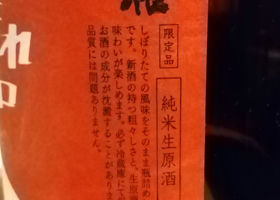 限定品
純米生原酒
しぼりたての風味をそのまま瓶詰め
です。新酒の持つ粗々しさと、生原
味わいが楽しめます。必ず冷蔵庫にて
お酒の成分が沈澱することがありま
品質には問題ありません。